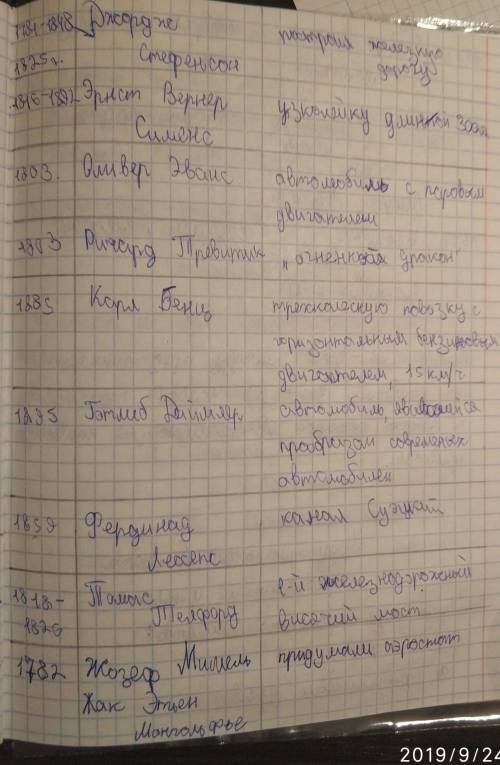 1781-1848 Джордж построил железную
1825г. Стефенсон дорогу
1816-1892 Эрнст Вернер узколейку длинной 300м
Сименс
1803. Оливер Эванс автомобиль с паровым
двигателем
1803 Ричард Тревитик „огненный дракон"
1885 Карл Бенц трехколесную повозку с
горизонтальным бензиновым
двигателем, 15 км/ч
Готлиб Даймлер автомобиль, явившийся
праобразом современых
автомобилей
1859 Фердинад канал Суэцкий
Лессепс
1818- Томас 1-й железнодорожный
1826 Телфорд висячий мост
1782 Жозеф Мишель придумали аэростат
Жак Этьен
Монгольфье
2019/9/24